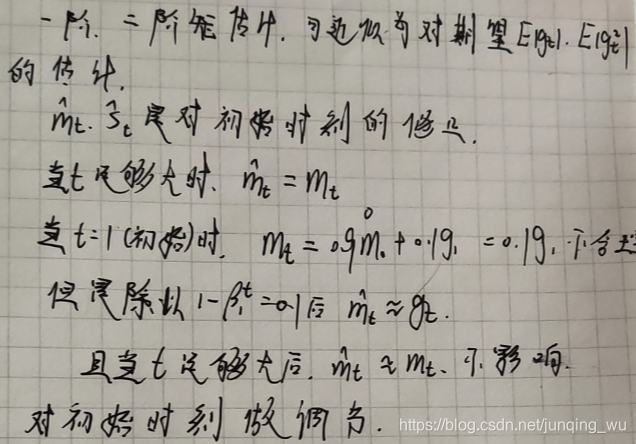 一阶.二阶矩估计.可近似为对期望E|gt|.E|gt²|
的估计.
m̂t.ŝt是对初始时刻的修正.
当t足够大时.m̂t=mt
当t=1(初始)时.mt=0.9m0+0.1g1=0.1g1不合理
0
但是除以1-β1^t=0.1后 m̂t≈gt.
且当t足够大后.m̂t≈mt.不影响.
对初始时刻做调节.
https://blog.csdn.net/junqing_wu